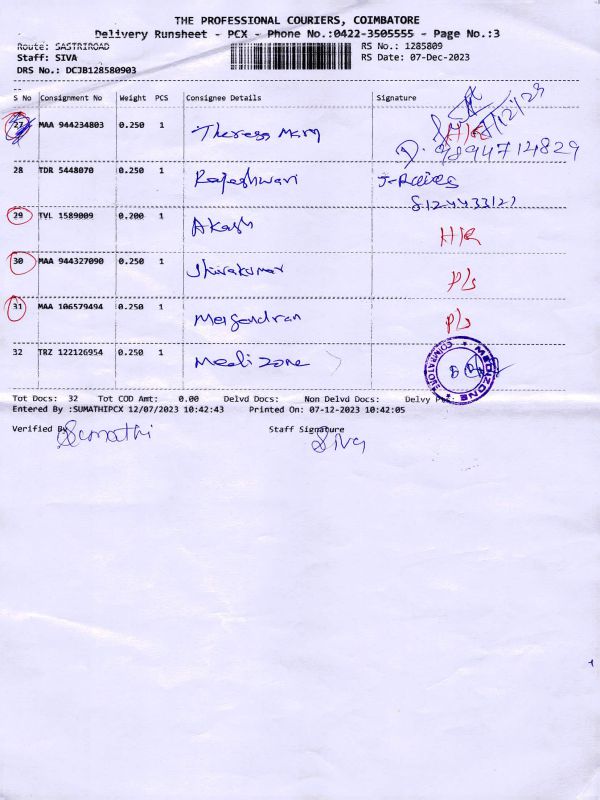 THE PROFESSIONAL COURIERS, COIMBATORE
Delivery Runsheet - PCX - Phone No.:0422-3505555 - Page No.:3
Route: SASTRIROAD
RS No.: 1285809
Staff: SIVA
RS Date: 07-Dec-2023
DRS No.: DCJB128580903
S No Consignment No Weight PCS Consignee Details Signature
27 MAA 944234803 0.250 1 Theresa Mary H/R
9894714829
28 TDR 5448070 0.250 1 Rajeshwari
8124433121
29 TVL 1589009 0.200 1 Akash H/R
30 MAA 944327090 0.250 1 Shivakumar P/s
31 MAA 106579494 0.250 1 P/s
32 TRZ 122126954 0.250 1 Medi zone
MEDIZONE * COIMBATORE *
Tot Docs: 32 Tot COD Amt: 0.00 Delvd Docs: Non Delvd Docs: Delvy
Entered By :SUMATHIPCX 12/07/2023 10:42:43 Printed On: 07-12-2023 10:42:05
Verified By Sumathi Staff Signature Siva